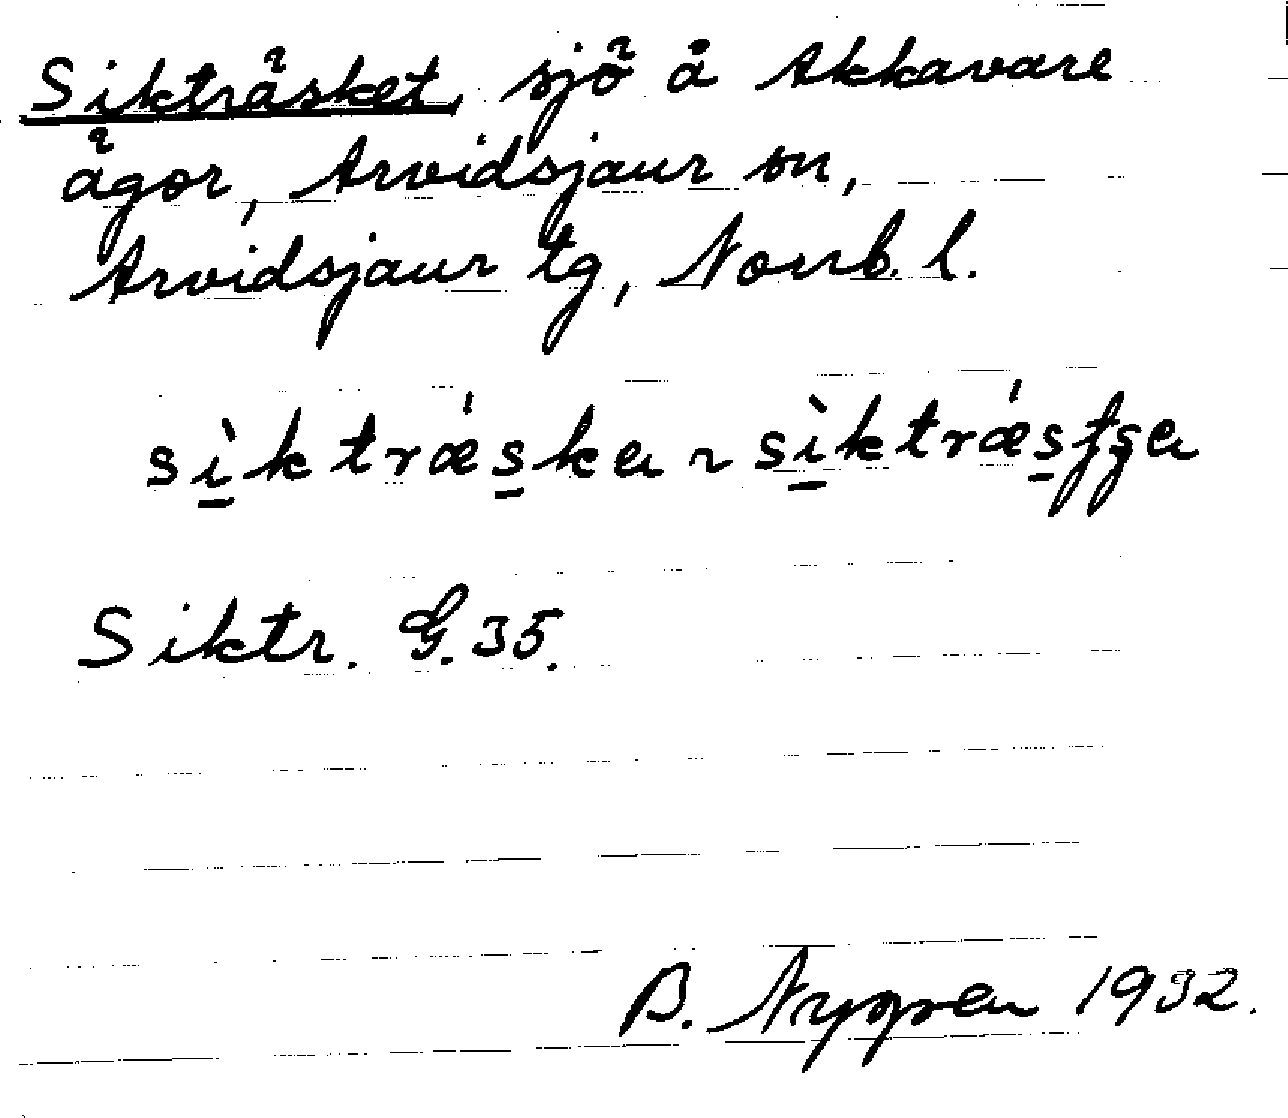 Sikträsket, sjö å Akkavare
ägor, Arvidsjaur sn,
Arvidsjaur tg, Norrb. l.
sìktrǽska ~ sìktrǽsʃʂa
Siktr. G. 35.
B. Nygren 1932.